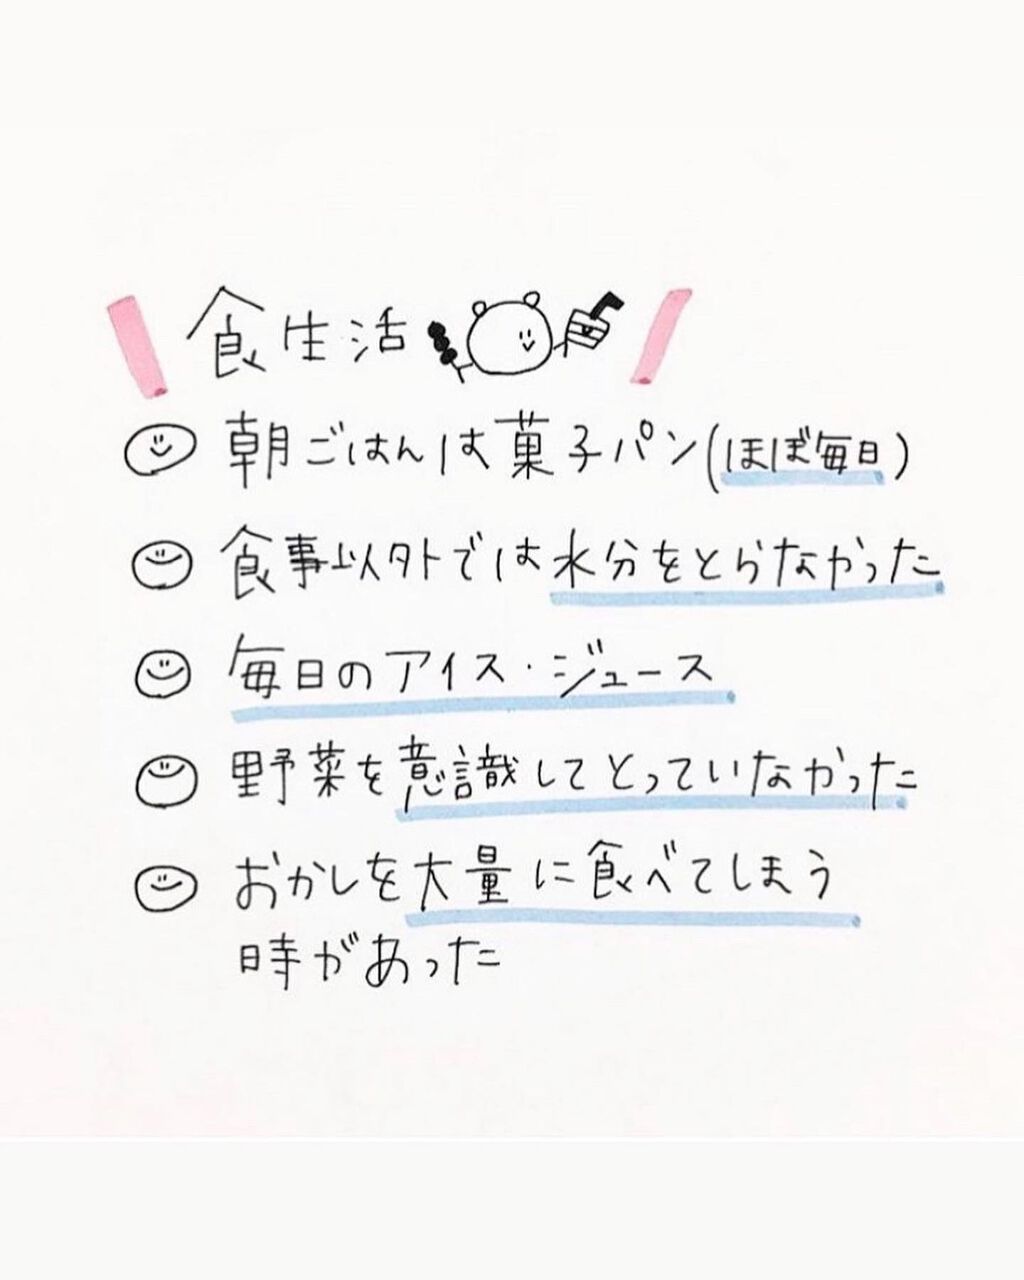 食生活
朝ごはんは菓子パン(ほぼ毎日)
食事以外では水分をとらなかった
毎日のアイス・ジュース
野菜を意識してとっていなかった
おかしを大量に食べてしまう
時があった